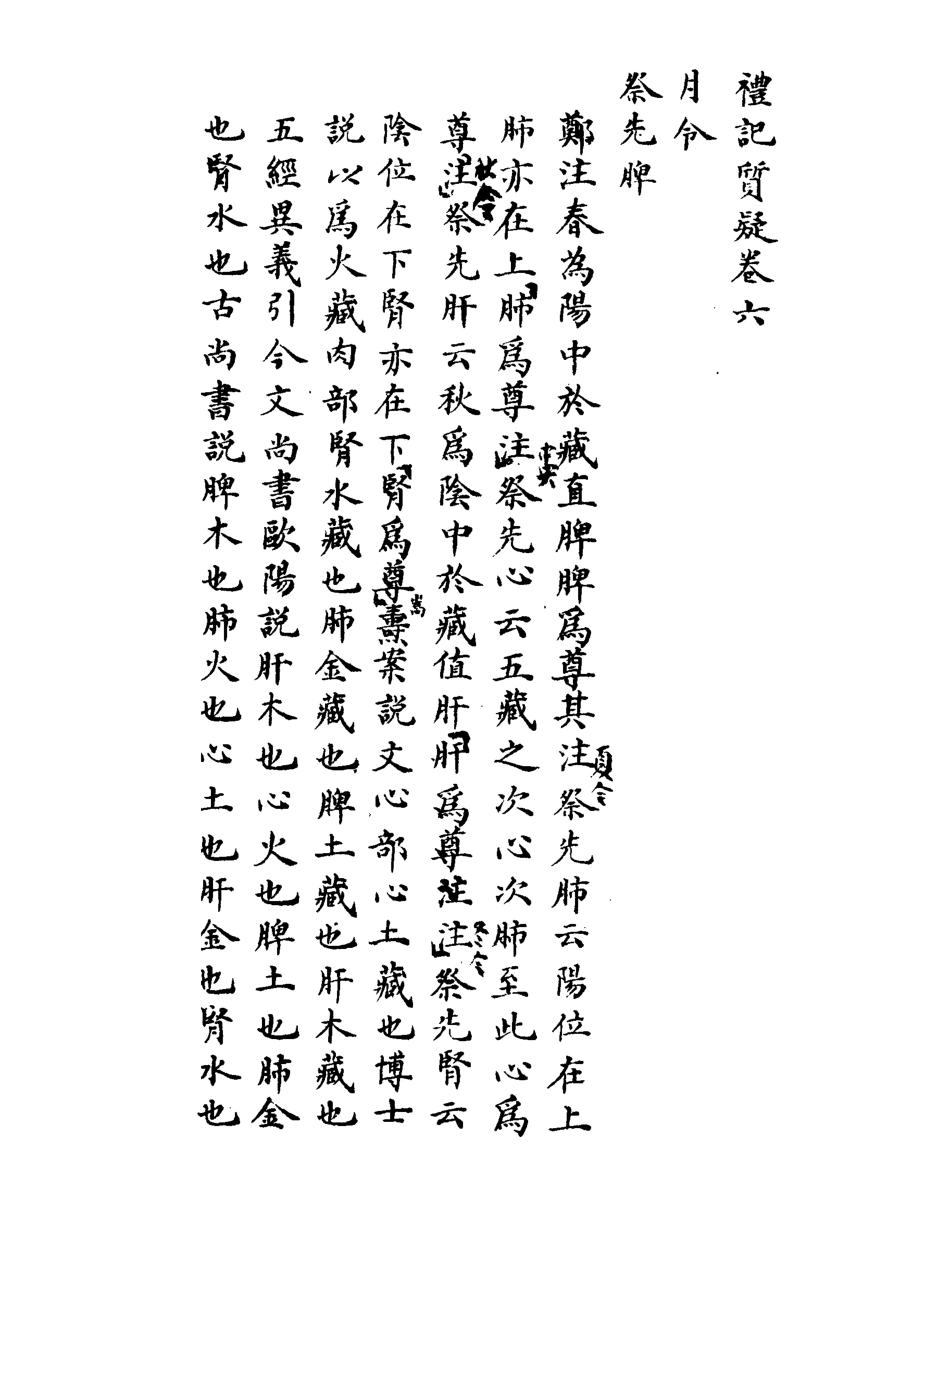 禮記質疑卷六
月令
祭先脾
鄭注春為陽中於藏直脾脾爲尊其注夏令祭先肺云陽位在上
肺亦在上肺爲尊注中央祭先心云五藏之次心次肺至此心爲
尊注秋令祭先肝云秋爲陰中於藏值肝肝爲尊注注冬令祭先腎云
陰位在下腎亦在下腎爲尊嵩燾案説文心部心土藏也博士
説以爲火藏肉部腎水藏也肺金藏也脾土藏也肝木藏也
五經異義引今文尚書歐陽説肝木也心火也脾土也肺金
也腎水也古尚書説脾木也肺火也心土也肝金也腎水也